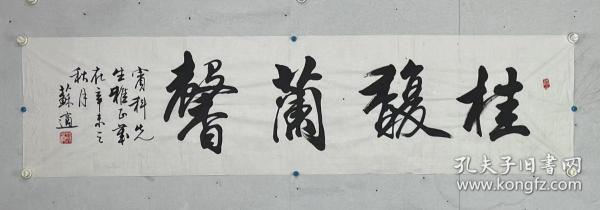 桂馥蘭馨
賓科先
生雅正歲
在辛未之
秋月
蘇適
孔夫子旧书网
www.kongfz.com